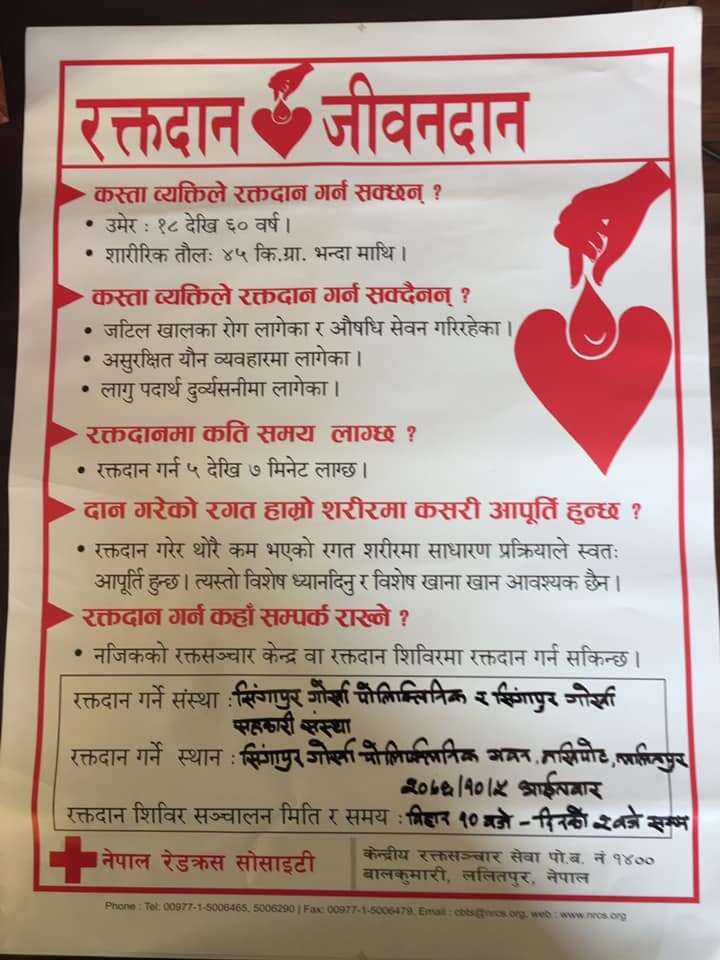 रक्तदान जीवनदान
कस्ता व्यक्तिले रक्तदान गर्न सक्छन् ?
• उमेर : १८ देखि ६० वर्ष ।
• शारीरिक तौलः ४५ कि.ग्रा. भन्दा माथि ।
कस्ता व्यक्तिले रक्तदान गर्न सक्दैनन् ?
• जटिल खालका रोग लागेका र औषधि सेवन गरिरहेका ।
• असुरक्षित यौन व्यवहारमा लागेका ।
• लागु पदार्थ दुर्व्यसनीमा लागेका ।
रक्तदानमा कति समय लाग्छ ?
• रक्तदान गर्न ५ देखि ७ मिनेट लाग्छ ।
दान गरेको रगत हाम्रो शरीरमा कसरी आपूर्ति हुन्छ ?
• रक्तदान गरेर थोरै कम भएको रगत शरीरमा साधारण प्रक्रियाले स्वतः
आपूर्ति हुन्छ । त्यस्तो विशेष ध्यानदिनु र विशेष खाना खान आवश्यक छैन ।
रक्तदान गर्न कहाँ सम्पर्क राख्ने ?
• नजिकको रक्तसञ्चार केन्द्र वा रक्तदान शिविरमा रक्तदान गर्न सकिन्छ ।
रक्तदान गर्ने संस्था : सिंगापुर गोर्खा पोलिक्लिनिक र सिंगापुर गोर्खा
सहकारी संस्था
रक्तदान गर्ने स्थान : सिंगापुर गोर्खा पोलिक्लिनिक भवन, नखिपोट, ललितपुर
२०७६/१०/५ आईतवार
रक्तदान शिविर सञ्चालन मिति र समय : बिहान १० बजे - दिनको २ बजे सम्म
नेपाल रेडक्रस सोसाइटी
केन्द्रीय रक्तसञ्चार सेवा पो.ब. नं १४००
बालकुमारी, ललितपुर, नेपाल
Phone : Tel: 00977-1-5006465, 5006290 | Fax: 00977-1-5006479, Email : cbts@nrcs.org, web : www.nrcs.org